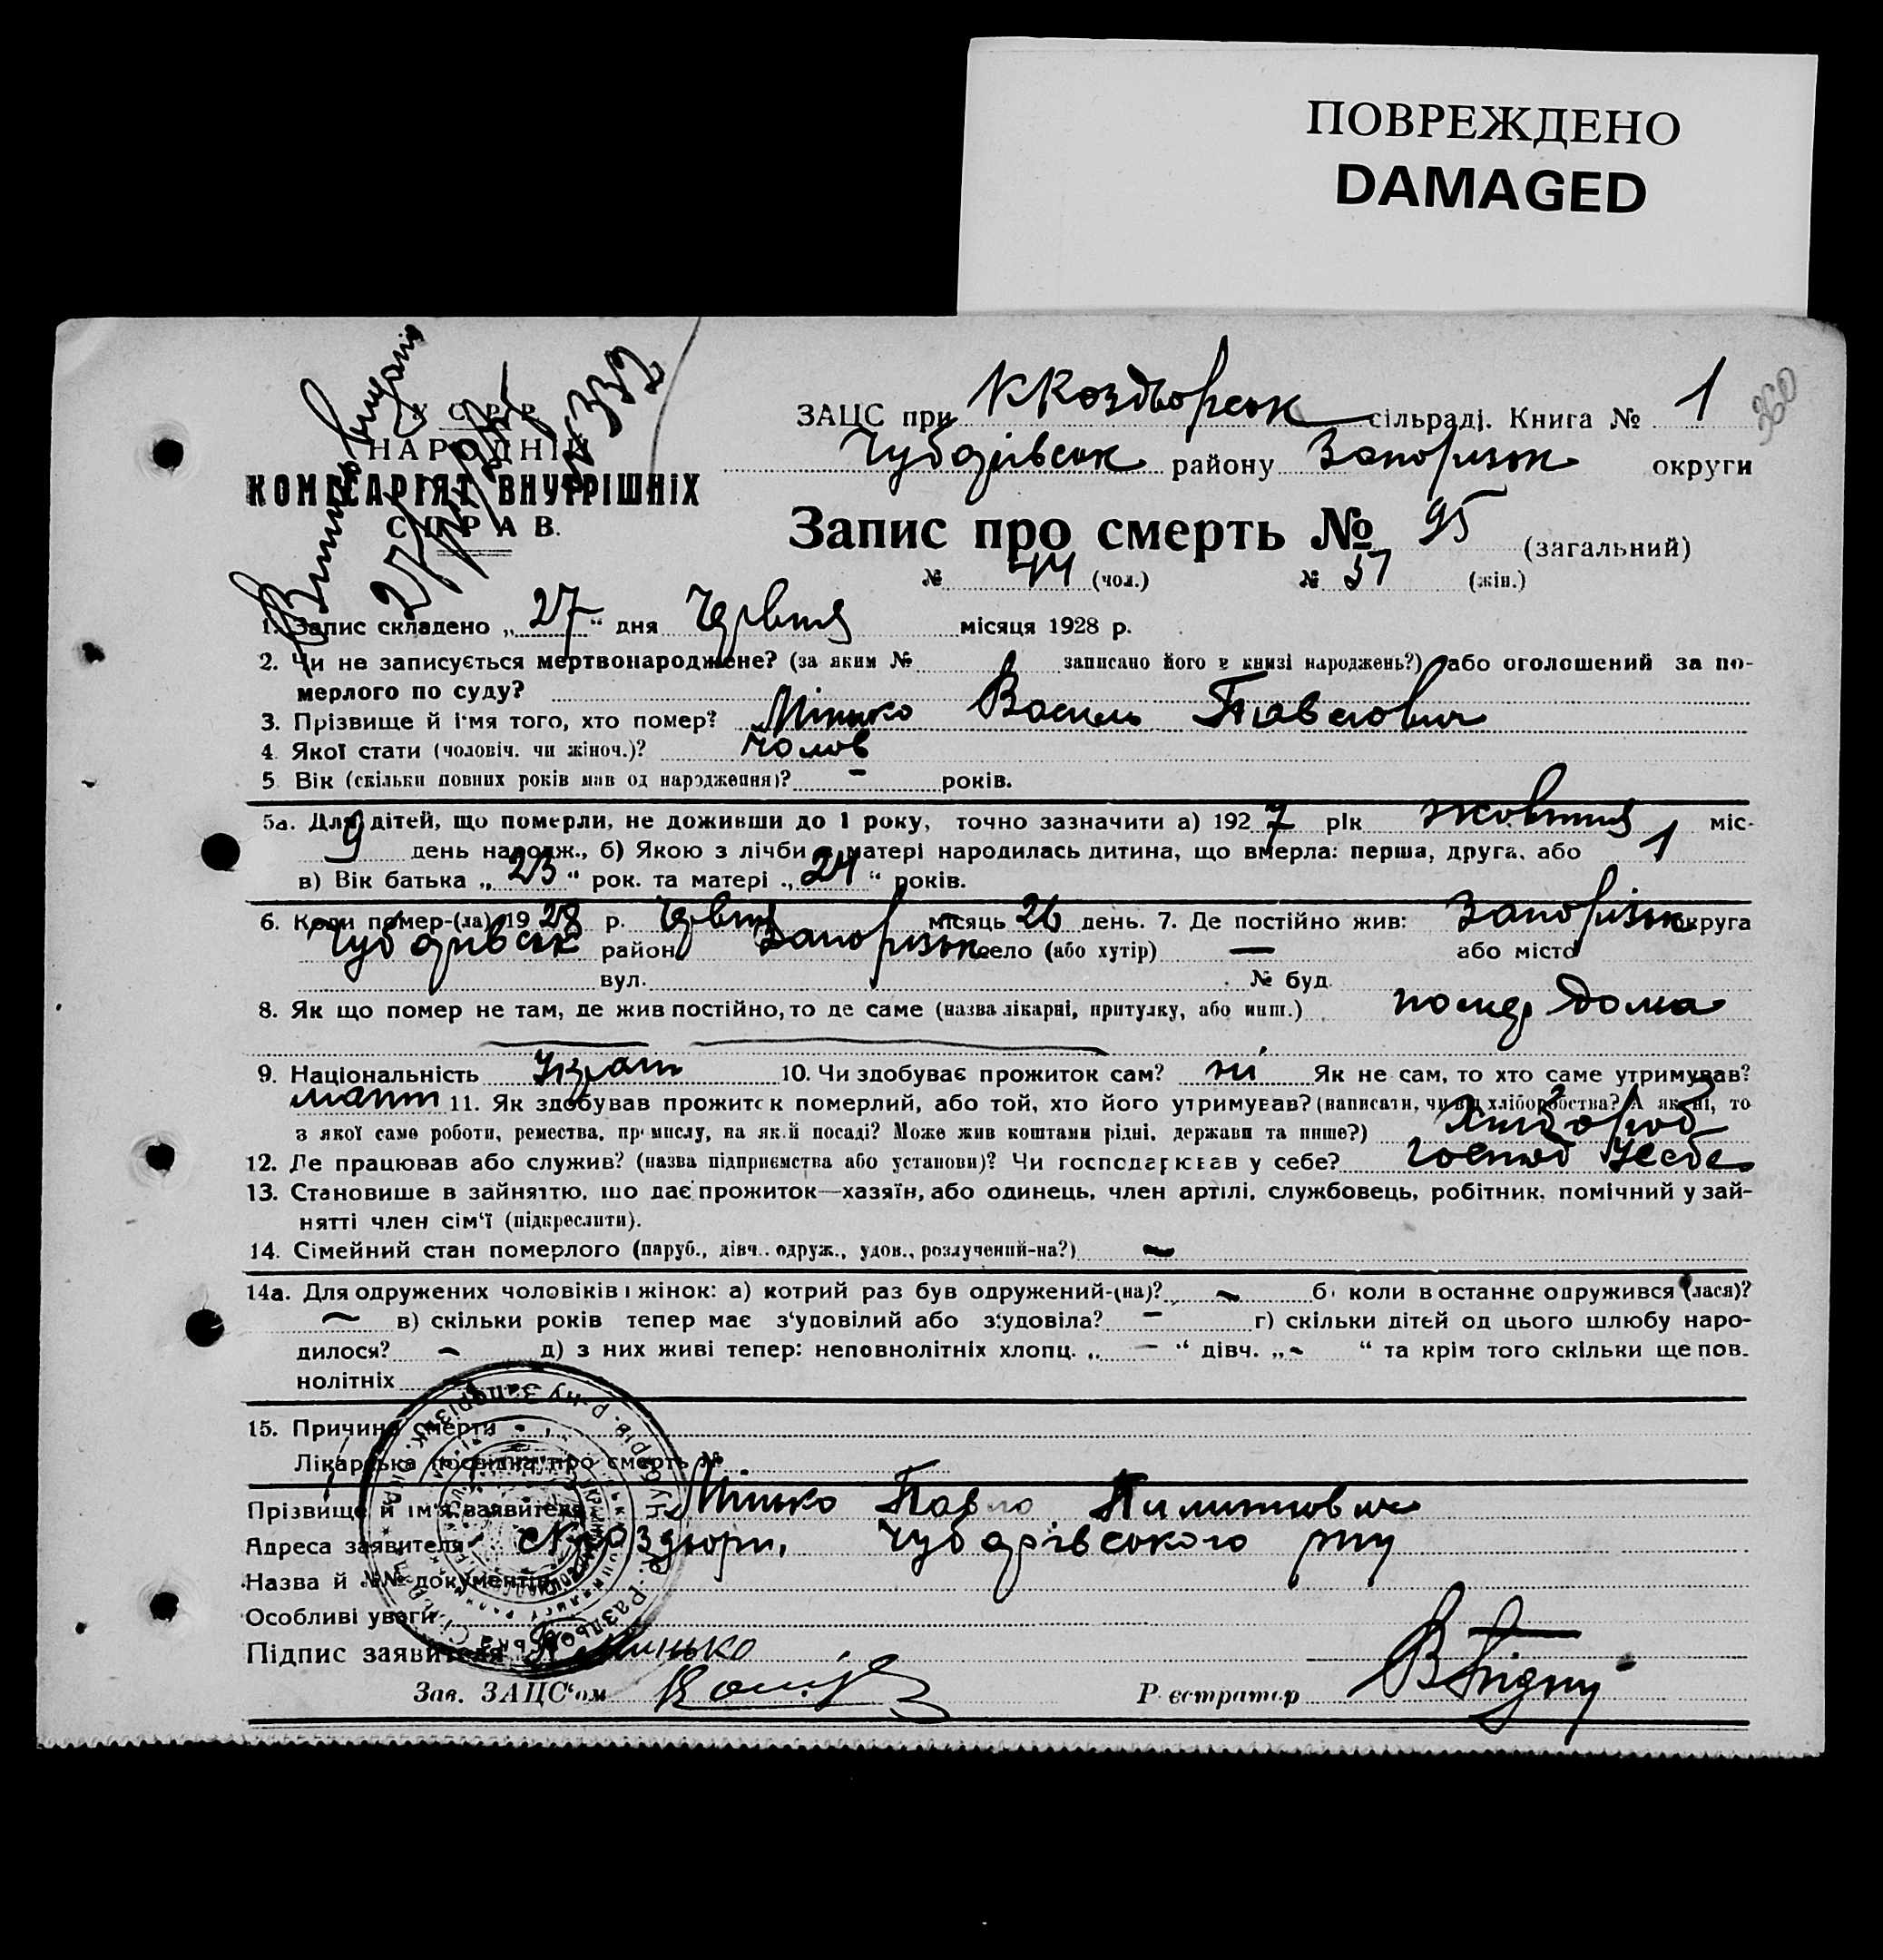 ПОВРЕЖДЕНО
DAMAGED
У С Р Р
НАРОДНІЙ
КОМІСАРІЯТ ВНУТРІШНІХ
СПРАВ.
27/
№ 332
360
ЗАЦС при сільраді. Книга № 1
Чубарівськ району Запорізьк округи
Запис про смерть № 95 (загальний)
№ 44 (чол.) № 51 (жін.)
1. Запис складено „27“ дня Червня місяця 1928 р.
2. Чи не записується мертвонароджене? (за яким № записано його в книзі народжень?) або оголошений за по-
мерлого по суду?
3. Прізвище й ім'я того, хто помер? Мінько Василь Павлович
4. Якої стати (чоловіч. чи жіноч.)? Чолов
5. Вік (скільки повних років мав од народження)? - років.
5а. Для дітей, що померли, не доживши до 1 року, точно зазначити а) 1927 рік жовтня міс-
9 день народж., б) Якою з лічби у матері народилась дитина, що вмерла: перша, друга, або 1
в) Вік батька „23“ рок. та матері „24“ років.
6. Коли помер-(ла) 1928 р. Червня місяць 26 день. 7. Де постійно жив: Запорізьк округа
Чубарівськ район Запорізьк село (або хутір) — або місто
вул. № буд.
8. Як що помер не там, де жив постійно, то де саме (назва лікарні, притулку, або инш.) помер дома
9. Національність Украт 10. Чи здобуває прожиток сам? ні Як не сам, то хто саме утримував?
мати 11. Як здобував прожиток померлий, або той, хто його утримував? (написати, чи від хліборобства? А як ні, то
з якої само роботи, ремества, промислу, на якій посаді? Може жив коштами рідні, держави та инше?) Хлибороб
12. Де працював або служив? (назва підприємства або установи)? Чи господарював у себе? господ Усебе
13. Становище в зайняттю, що дає прожиток—хазяїн, або одинець, член артілі, службовець, робітник, помічний у зай-
нятті член сім'ї (підкреслити).
14. Сімейний стан померлого (паруб., дівч., одруж., удов., розлучений-на?) ~
14а. Для одружених чоловіків і жінок: а) котрий раз був одружений-(на)? ~ б) коли востаннє одружився (лася)?
~ в) скільки років тепер має з'удовілий або з'удовіла? — г) скільки дітей од цього шлюбу наро-
дилося? ~ д) з них живі тепер: неповнолітніх хлопц. „—“ дівч. „~“ та крім того скільки ще пов-
нолітніх
15. Причина смерти
Лікарська посвідка про смерть №
Прізвище й ім'я заявителя Мінько Павло Пилипович
Адреса заявителя Чубарівського рну
Назва й №№ документів
Особливі уваги
Підпис заявителя Минько
Зав. ЗАЦС'ом
Реєстратор